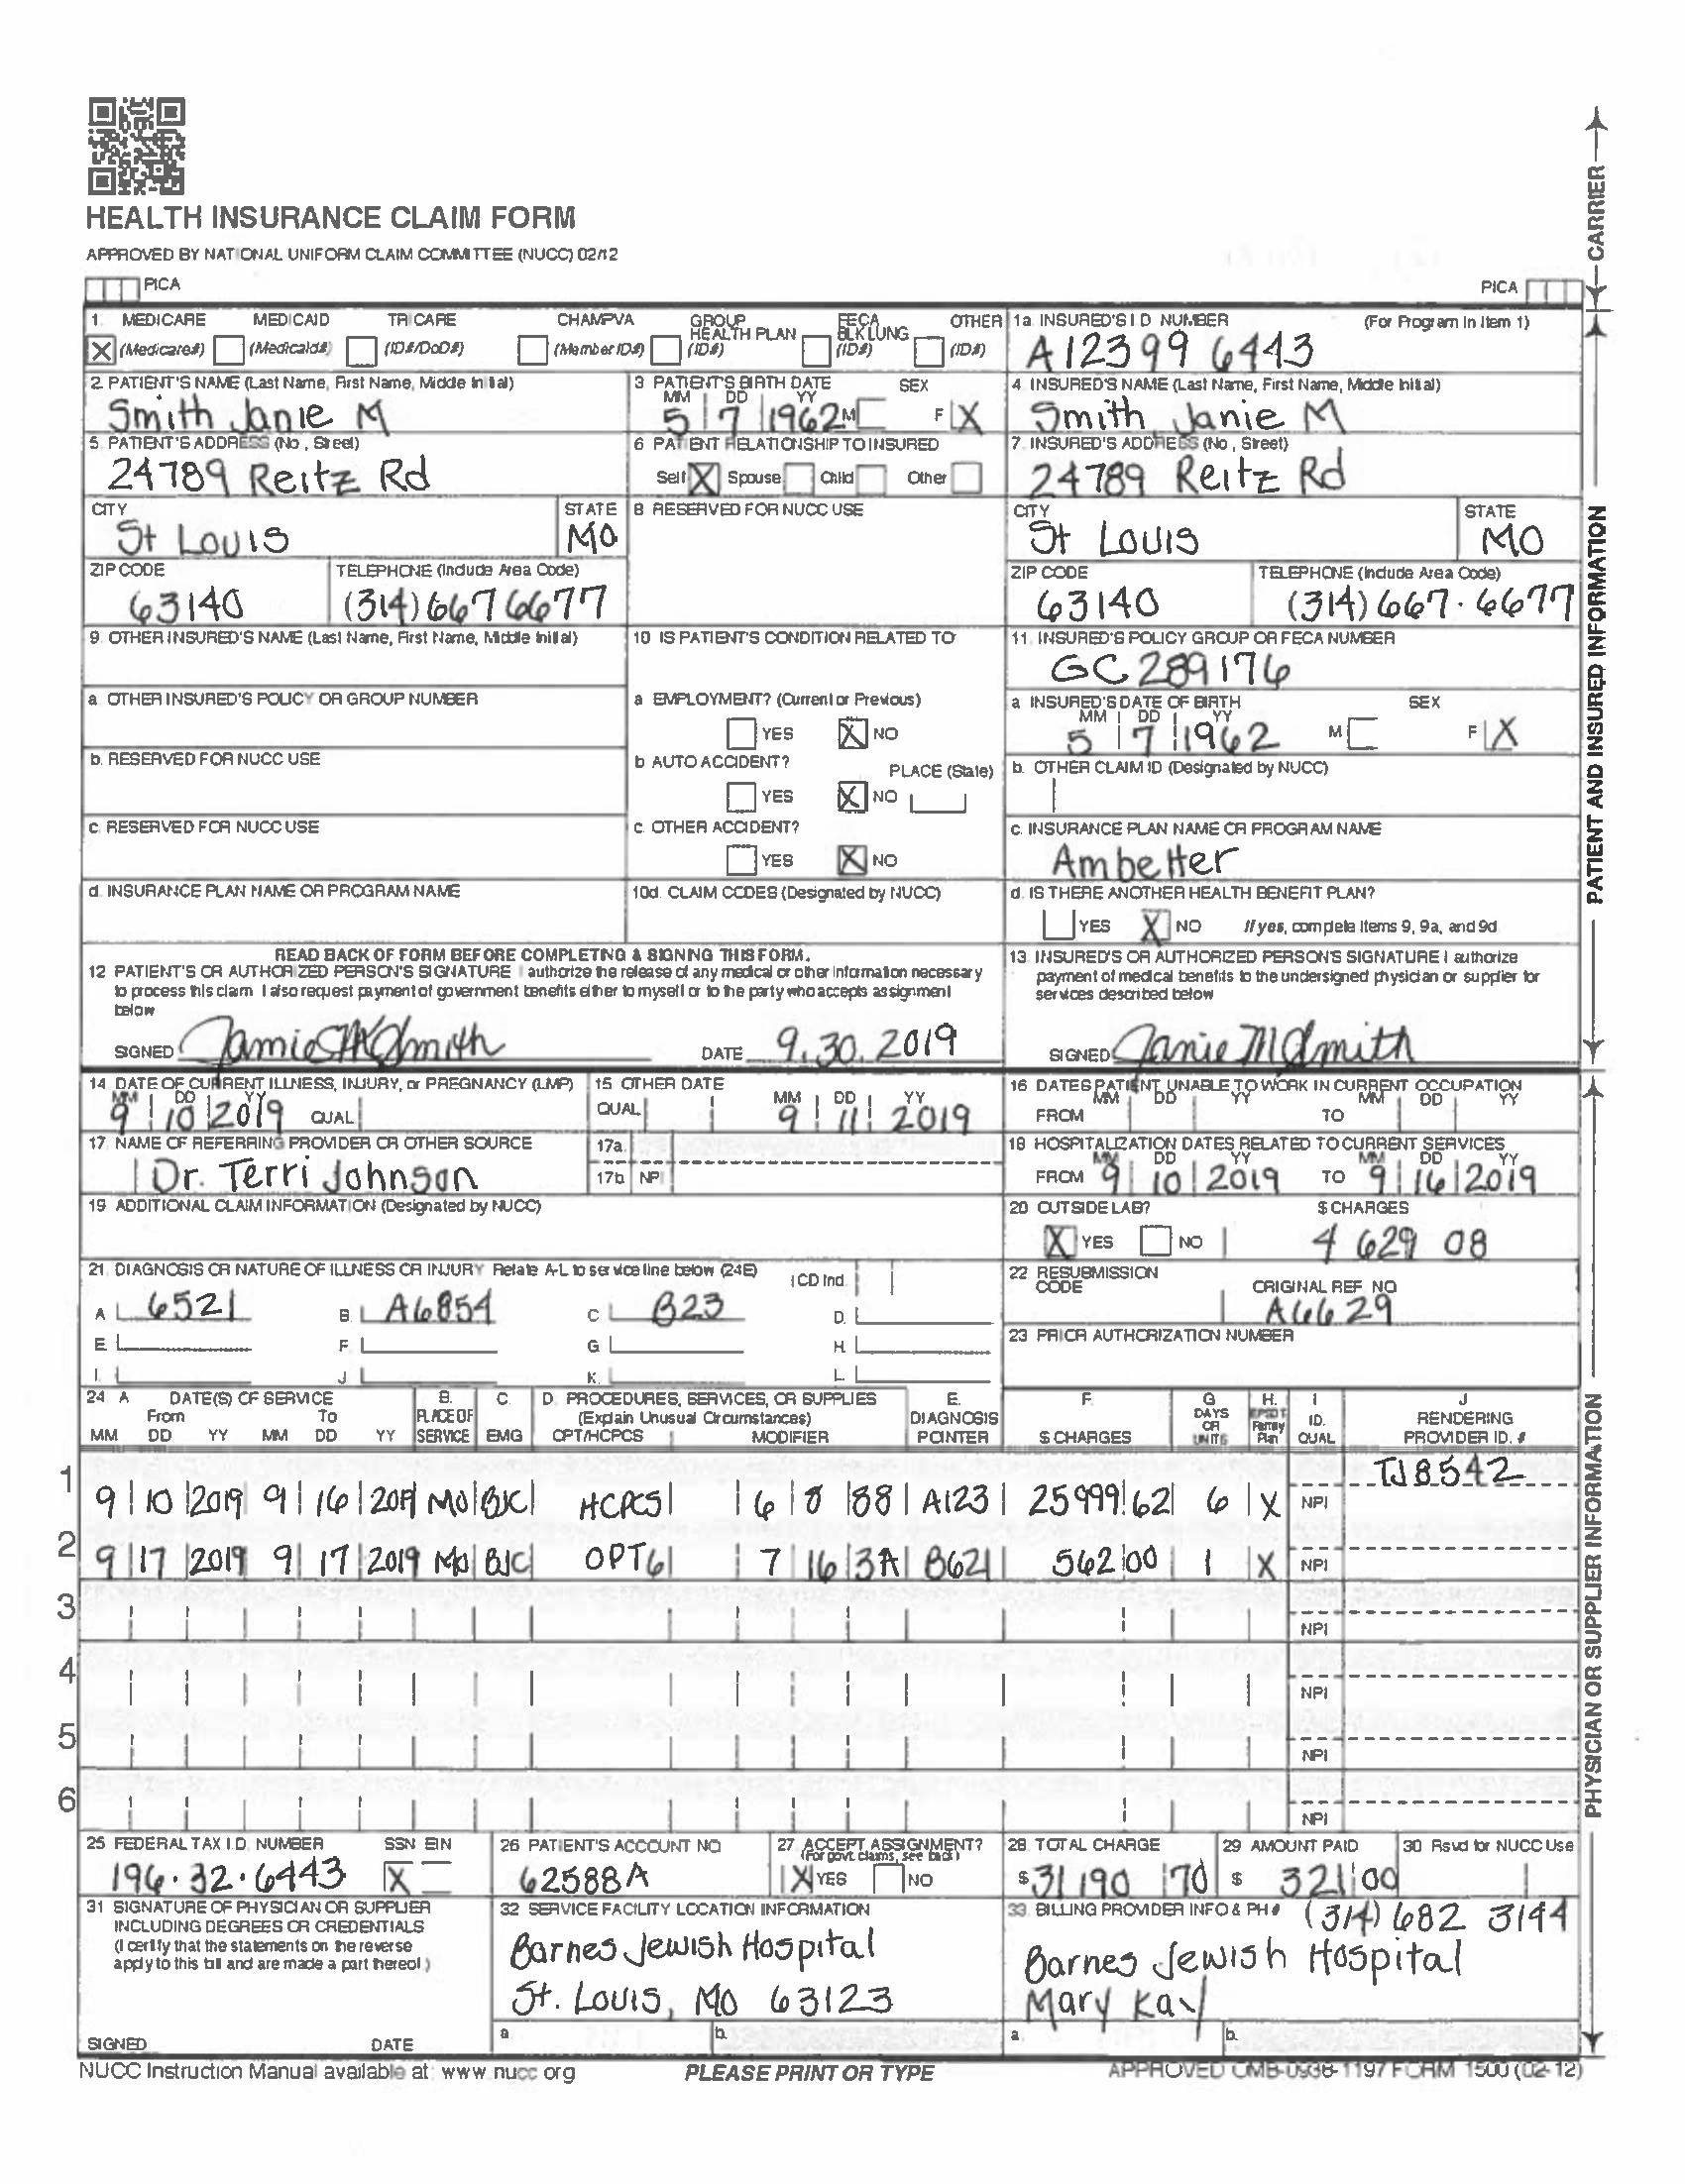 HEALTH INSURANCE CLAIM FORM
APPROVED BY NATIONAL UNIFORM CLAIM COMMITTEE (NUCC) 02/12
PICA
PICA
CARRIER
1. MEDICARE MEDICAID TRICARE CHAMPVA GROUP HEALTH PLAN FECA BLK LUNG OTHER
X (Medicare#) (Medicaid#) (ID#/DoD#) (Member ID#) (ID#) (ID#) (ID#)
1a. INSURED'S I.D. NUMBER (For Program in Item 1)
A12399 6443
2. PATIENT'S NAME (Last Name, First Name, Middle Initial)
Smith Janie M
3 PATIENT'S BIRTH DATE SEX
MM DD YY
5 7 1962 M F X
4. INSURED'S NAME (Last Name, First Name, Middle Initial)
Smith Janie M
5. PATIENT'S ADDRESS (No., Street)
24789 Reitz Rd
6 PATIENT RELATIONSHIP TO INSURED
Self X Spouse Child Other
7. INSURED'S ADDRESS (No., Street)
24789 Reitz Rd
CITY
St Louis
STATE
MO
8 RESERVED FOR NUCC USE
CITY
St Louis
STATE
MO
ZIP CODE
63140
TELEPHONE (Include Area Code)
(314) 667 6677
ZIP CODE
63140
TELEPHONE (Include Area Code)
(314) 667.6677
9. OTHER INSURED'S NAME (Last Name, First Name, Middle Initial)
10 IS PATIENT'S CONDITION RELATED TO
11. INSURED'S POLICY GROUP OR FECA NUMBER
GC 289176
a OTHER INSURED'S POLICY OR GROUP NUMBER
a EMPLOYMENT? (Current or Previous)
YES X NO
a INSURED'S DATE OF BIRTH SEX
MM DD YY
5 7 1962 M F X
b. RESERVED FOR NUCC USE
b AUTO ACCIDENT? PLACE (State)
YES X NO
b. OTHER CLAIM ID (Designated by NUCC)
c. RESERVED FOR NUCC USE
c. OTHER ACCIDENT?
YES X NO
c. INSURANCE PLAN NAME OR PROGRAM NAME
Ambetter
d. INSURANCE PLAN NAME OR PROGRAM NAME
10d. CLAIM CODES (Designated by NUCC)
d. IS THERE ANOTHER HEALTH BENEFIT PLAN?
YES X NO If yes, complete items 9, 9a, and 9d
PATIENT AND INSURED INFORMATION
READ BACK OF FORM BEFORE COMPLETING & SIGNING THIS FORM.
12 PATIENT'S OR AUTHORIZED PERSON'S SIGNATURE I authorize the release of any medical or other information necessary
to process this claim I also request payment of government benefits either to myself or to the party who accepts assignment
below
SIGNED Jamie M Smith DATE 9.30.2019
13. INSURED'S OR AUTHORIZED PERSON'S SIGNATURE I authorize
payment of medical benefits to the undersigned physician or supplier for
services described below
SIGNED Janie M Smith
14 DATE OF CURRENT ILLNESS, INJURY, or PREGNANCY (LMP)
MM DD YY
9 10 2019 QUAL
15 OTHER DATE
QUAL MM DD YY
9 11 2019
16 DATES PATIENT UNABLE TO WORK IN CURRENT OCCUPATION
MM DD YY MM DD YY
FROM TO
17. NAME OF REFERRING PROVIDER OR OTHER SOURCE
Dr. Terri Johnson
17a.
17b NPI
18 HOSPITALIZATION DATES RELATED TO CURRENT SERVICES
MM DD YY MM DD YY
FROM 9 10 2019 TO 9 16 2019
19 ADDITIONAL CLAIM INFORMATION (Designated by NUCC)
20 OUTSIDE LAB? $ CHARGES
X YES NO 4 629 08
21. DIAGNOSIS OR NATURE OF ILLNESS OR INJURY Relate A-L to service line below (24E) ICD Ind.
A 6521 B. A6854 C B23 D.
E. F. G H.
I. J K. L.
22 RESUBMISSION CODE ORIGINAL REF. NO
A6629
23 PRIOR AUTHORIZATION NUMBER
24 A DATE(S) OF SERVICE B. C. D. PROCEDURES, SERVICES, OR SUPPLIES E. F. G H. I J
From To PLACE OF (Explain Unusual Circumstances) DIAGNOSIS DAYS OR EPSDT Family ID. RENDERING
MM DD YY MM DD YY SERVICE EMG CPT/HCPCS MODIFIER POINTER $ CHARGES UNITS Plan QUAL PROVIDER ID. #
TJ8542
1 9 10 2019 9 16 2019 MO BJC HCPCS 6 8 88 A123 25999 62 6 X NPI
2 9 17 2019 9 17 2019 MO BJC OPT6 7 16 3A B621 562 00 1 X NPI
3 NPI
4 NPI
5 NPI
6 NPI
PHYSICIAN OR SUPPLIER INFORMATION
25 FEDERAL TAX I.D. NUMBER SSN EIN
196.32.6443 X
26 PATIENT'S ACCOUNT NO
62588A
27 ACCEPT ASSIGNMENT?
(For govt. claims, see back)
X YES NO
28. TOTAL CHARGE
$ 31190 70
29 AMOUNT PAID
$ 321 00
30 Rsvd for NUCC Use
31 SIGNATURE OF PHYSICIAN OR SUPPLIER
INCLUDING DEGREES OR CREDENTIALS
(I certify that the statements on the reverse
apply to this bill and are made a part thereof.)
SIGNED DATE
32 SERVICE FACILITY LOCATION INFORMATION
Barnes Jewish Hospital
St. Louis, MO 63123
a b.
33. BILLING PROVIDER INFO & PH # (314) 682 3144
Barnes Jewish Hospital
Mary Kay
a. b.
NUCC Instruction Manual available at: www.nucc.org
PLEASE PRINT OR TYPE
APPROVED OMB-0938-1197 FORM 1500 (02-12)